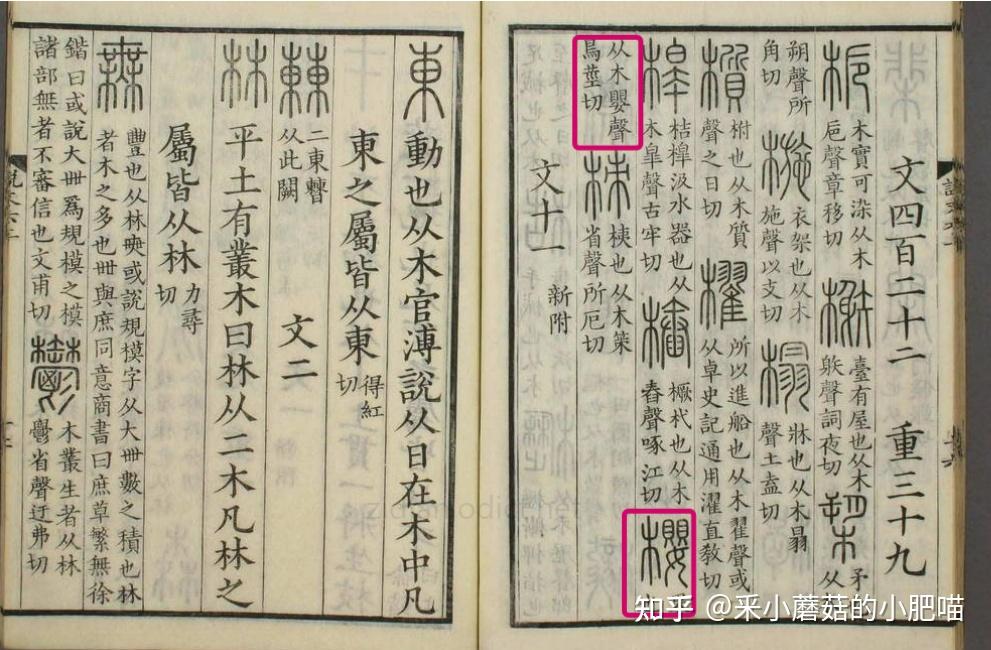 文四百二十二 重三十九
梔 木實可染从木巵聲章移切 榭 臺有屋也从木䠶聲詞夜切 槊 矛 从
朔聲所角切 椸 衣架也从木施聲以支切 榻 牀也从木𦐇聲土盍切
櫍 柎也从木質聲之日切 櫂 所以進船也从木翟聲或从卓史記通用濯直敎切
橰 桔橰汲水器也从木皐聲古牢切 樁 橛杙也从木舂聲啄江切 櫻
从木嬰聲烏莖切 梀 桋也从木策省聲所厄切
文十一 新附
東 動也从木官溥說从日在木中凡
東之屬皆从東 得紅切
𣡌 二東曹从此闕 文二
林 平土有叢木曰林从二木凡林之
屬皆从林 力尋切
無 豐也从林奭或說規模字从大𠦜數之積也林者木之多也𠦜與庶同意商書曰庶草繁無徐
鍇曰或說大𠦜爲規模之模諸部無者不審信也文甫切 鬱 木叢生者从林鬱省聲迂弗切
知乎 @釆小蘑菇的小肥喵